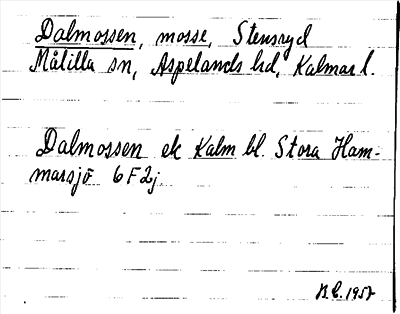 Dalmossen, mosse, Stensryd
Målilla sn, Aspelands hd, Kalmar l.
Dalmossen ek Kalm bl. Stora Ham-
marsjö 6F2j.
1957